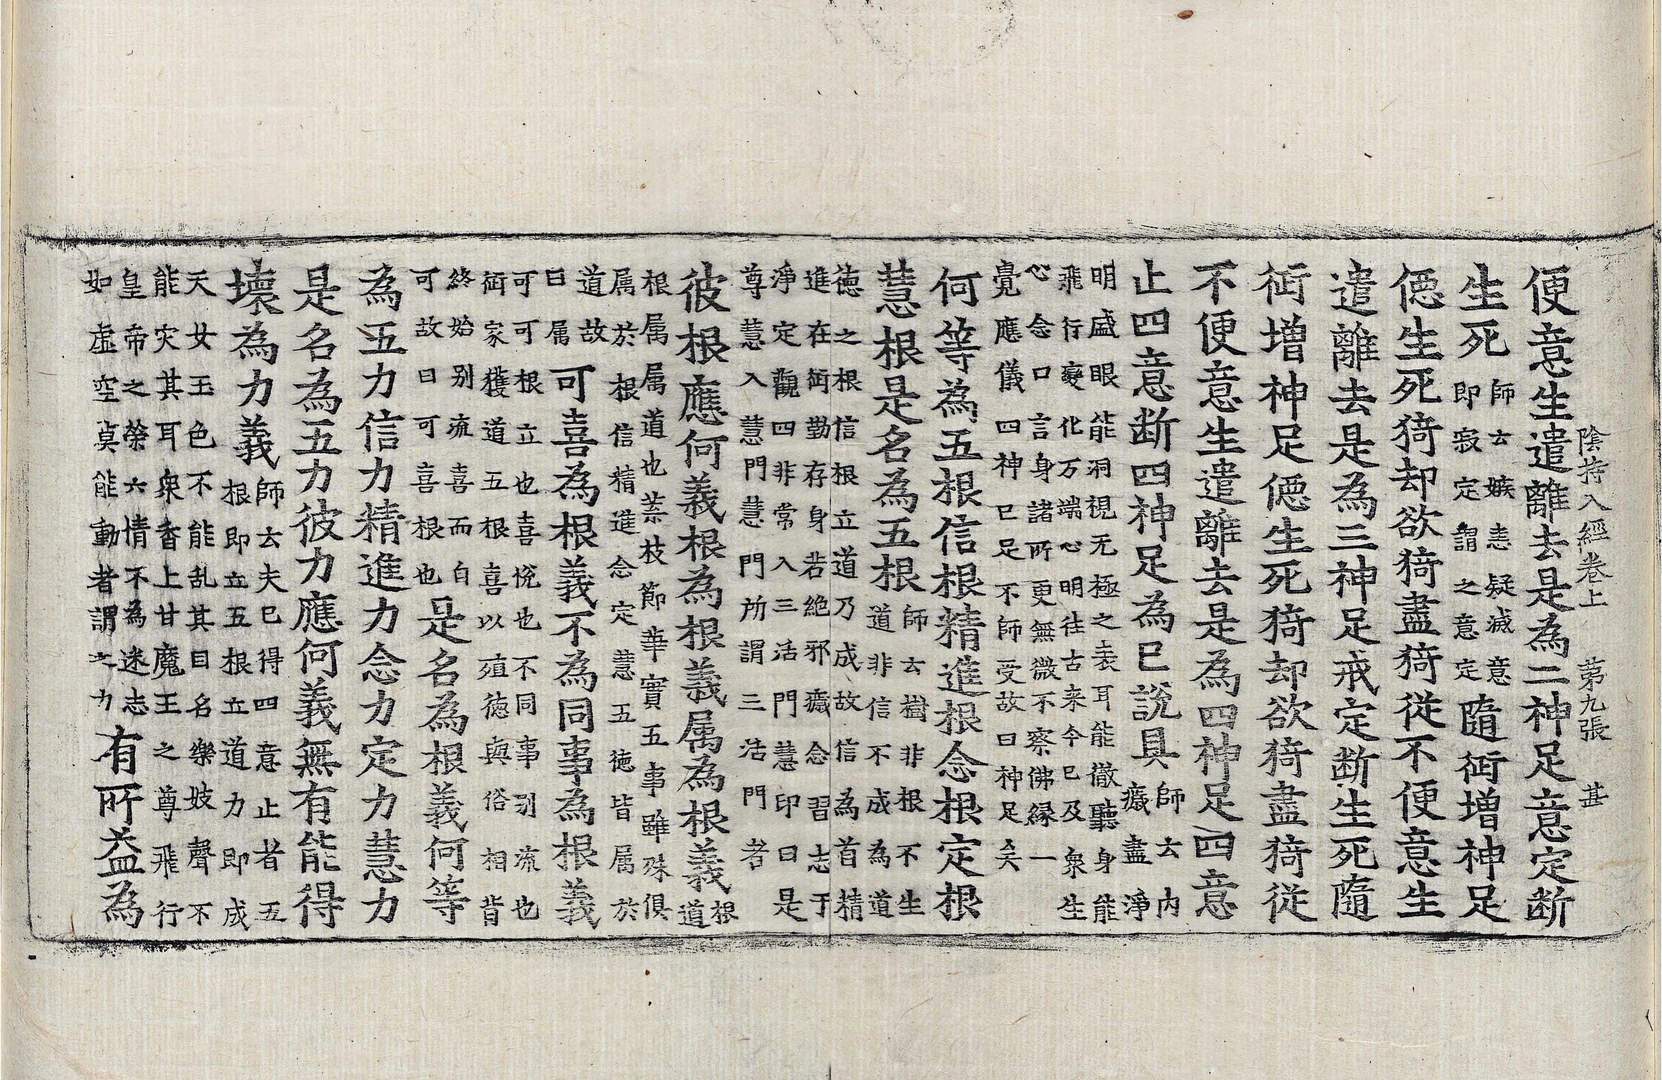 陰持入經卷上 第九張 甚
便意生遣離去是為二神足意定断
生死
師云嫉恚疑滅意
即寂定謂之意定
隨術增神足
僫生死猗却欲猗盡猗從不便意生
遣離去是為三神足戒定断生死隨
術增神足僫生死猗却欲猗盡猗從
不便意生遣離去是為四神足四意
止四意断四神足為已說具
師云内
癡盡淨
明盛眼能洞視无極之表耳能徹聽身能
飛行變化万端心明往古来今已及衆生
心念口言身諸所更無微不察佛縁一
覺應儀四神已足不師受故曰神足矣
何等為五根信根精進根念根定根
慧根是名為五根
師云樹非根不生
道非信不成為道
德之根信根立道乃成故信為首精
進在術勤存身若絶邪癡念習志于
淨定觀四非常入三活門慧印曰是
尊慧入慧門慧門所謂三活門者
彼根應何義根為根義属為根義
根
道
根属属道也葉枝節華實五事雖殊俱
属於根信精進念定慧五徳皆属於
道故
曰属
可喜為根義不為同事為根義
可可根立也喜悅也不同事别流也
術家獲道五根喜以殖徳與俗相背
終始别流喜而自
可故曰可喜根也
是名為根義何等
為五力信力精進力念力定力慧力
是名為五力彼力應何義無有能得
壞為力義
師云夫已得四意止者五
根即立五根立道力即成
天女玉色不能乱其目名樂妓聲不
能灾其耳衆香上甘魔王之尊飛行
皇帝之榮六情不為迷志
如虚空莫能動者謂之力
有所益為